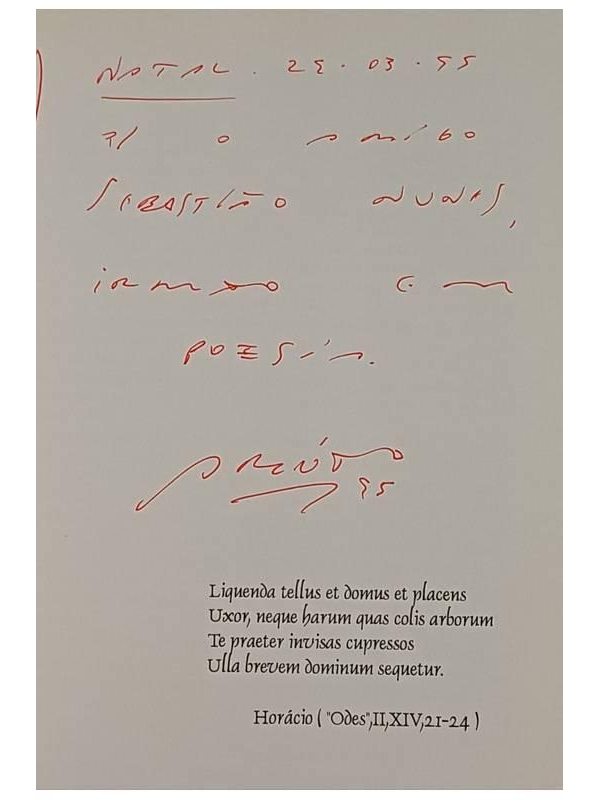 NATAL. 29.03.95
P/ O AMIGO
SEBASTIÃO NUNES,
IRMÃO EM
POESIA.
95
Liquenda tellus et domus et placens
Uxor, neque harum quas colis arborum
Te praeter invisas cupressos
Ulla brevem dominum sequetur.
Horácio ( "Odes",II,XIV,21-24 )